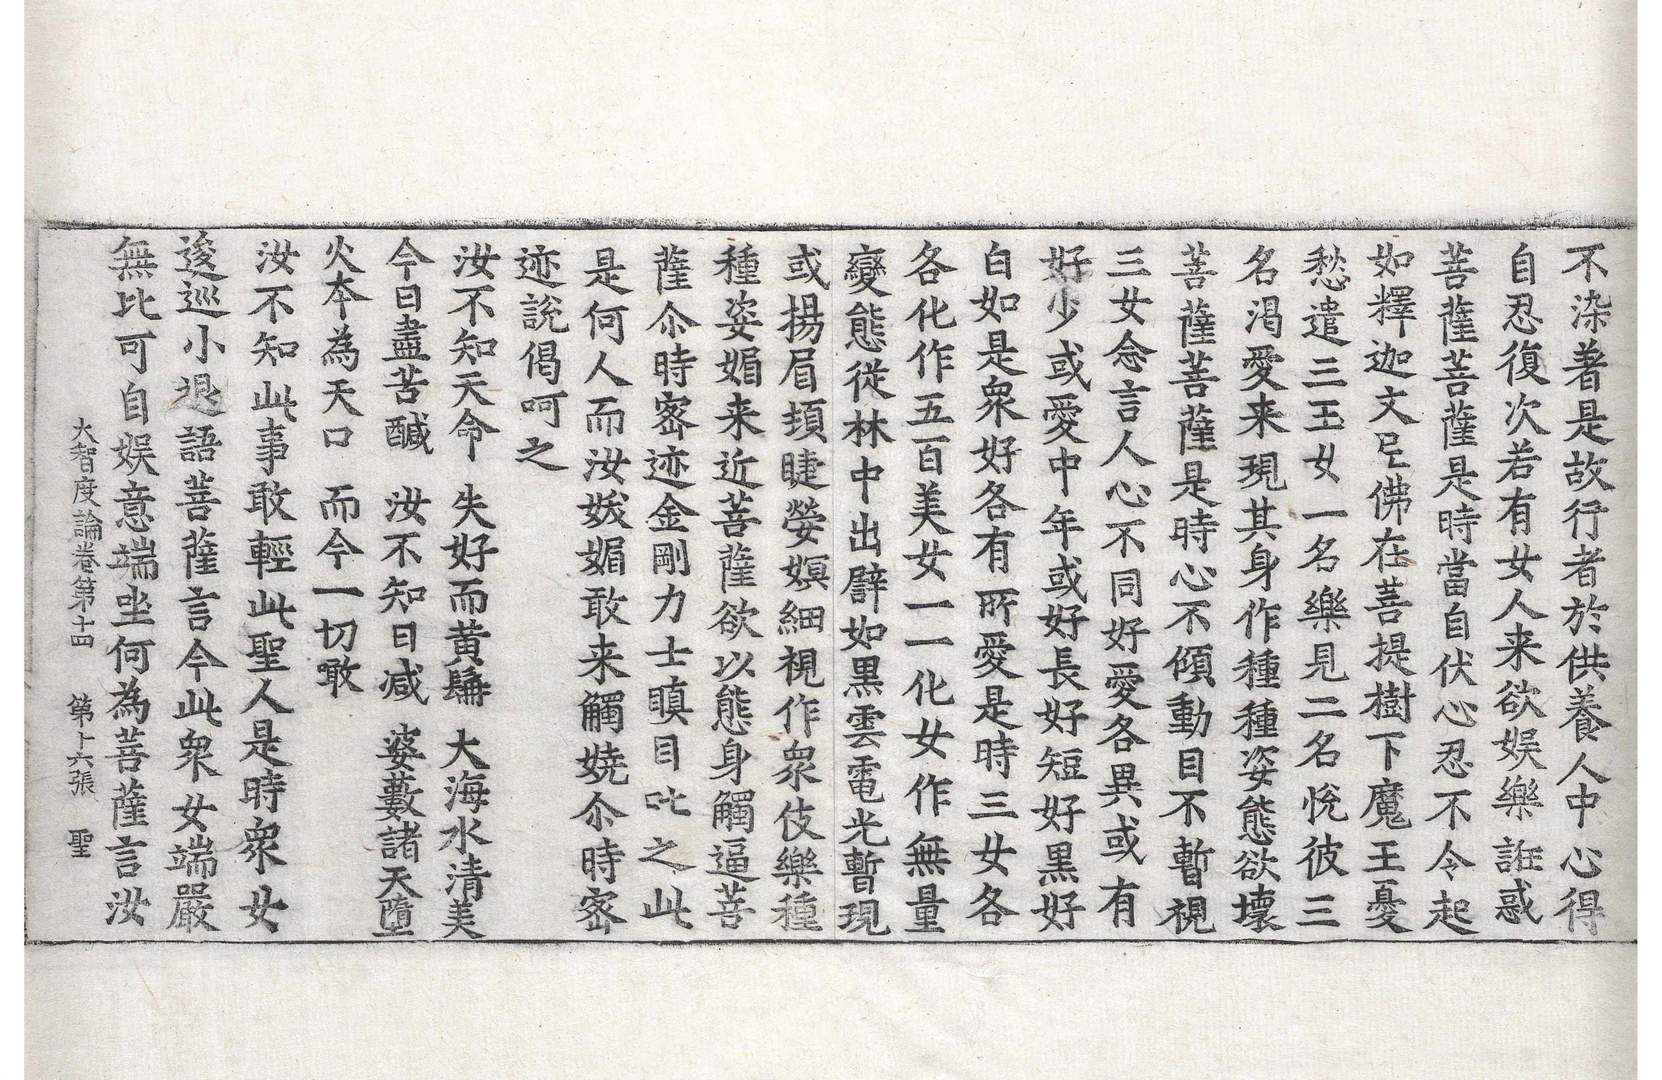 不染著是故行者於供養人中心得
自忍復次若有女人来欲娱樂誑惑
菩薩菩薩是時當自伏心忍不令起
如釋迦文尼佛在菩提樹下魔王憂
愁遣三玉女一名樂見二名悅彼三
名渴愛来現其身作種種姿態欲壞
菩薩菩薩是時心不傾動目不暫視
三女念言人心不同好愛各異或有
好少或愛中年或好長好短好黒好
白如是衆好各有所愛是時三女各
各化作五百美女一一化女作無量
變態從林中出譬如黒雲電光暫現
或揚眉頓睫嫈嫇細視作衆伎樂種
種姿媚来近菩薩欲以態身觸逼菩
薩尒時密迹金剛力士瞋目叱之此
是何人而汝妖媚敢来觸嬈尒時密
迹說偈呵之
汝不知天命　失好而黄髯　大海水清美
今日盡苦醎　汝不知日减　婆藪諸天墮
火本為天口　而今一切噉
汝不知此事敢輕此聖人是時衆女
逡巡小退語菩薩言今此衆女端嚴
無比可自娱意端坐何為菩薩言汝
大智度論卷第十四　第十六張　聖